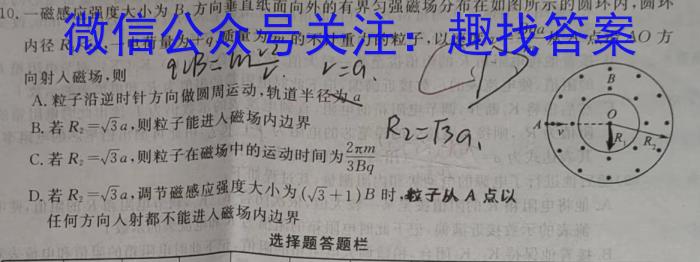 10. 一磁感应强度大小为 B、方向垂直纸面向外的有界匀强磁场分布在如图所示的圆环内,圆环
内径 R
微信公众号关注:趣找答案
AO 方
向射入磁场,则
qvB=m v²/r. r=a.
A. 粒子沿逆时针方向做圆周运动,轨道半径为 a
B. 若 R₂=√3a,则粒子能进入磁场内边界
R₂=√3a.
C. 若 R₂=√3a,则粒子在磁场中的运动时间为 2πm/3Bq
D. 若 R₂=√3a,调节磁感应强度大小为(√3+1)B 时,粒子从 A 点以
任何方向入射都不能进入磁场内边界
B
O
A
v
R₁
R₂
选择题答题栏